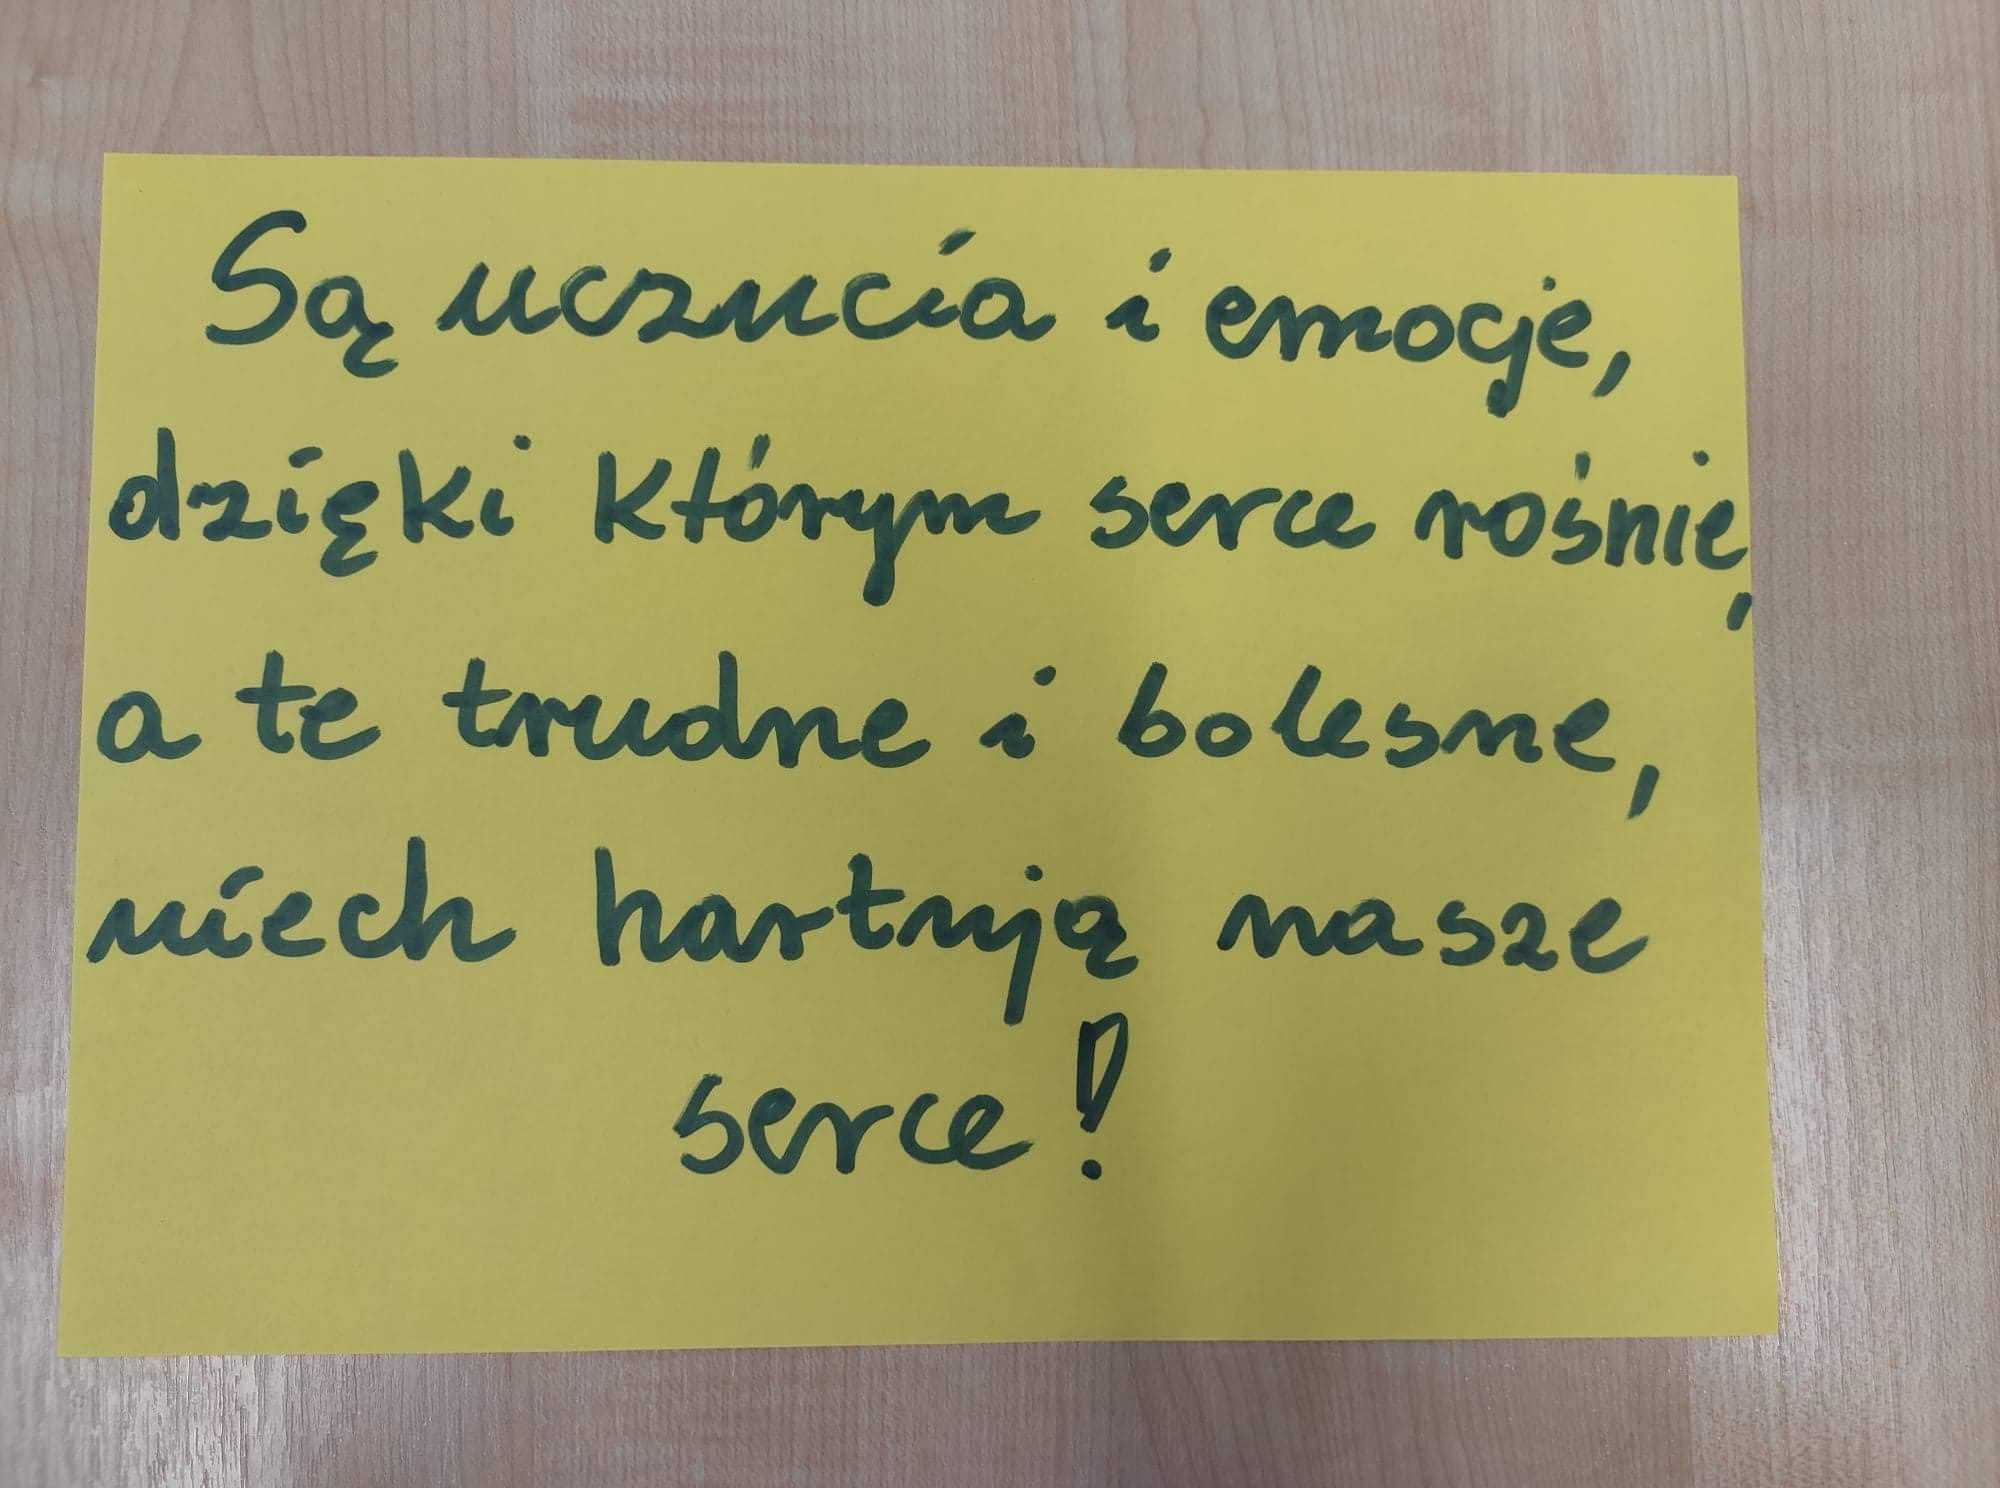 Są uczucia i emocje,
dzięki którym serce rośnie,
a te trudne i bolesne,
niech hartują nasze
serce!